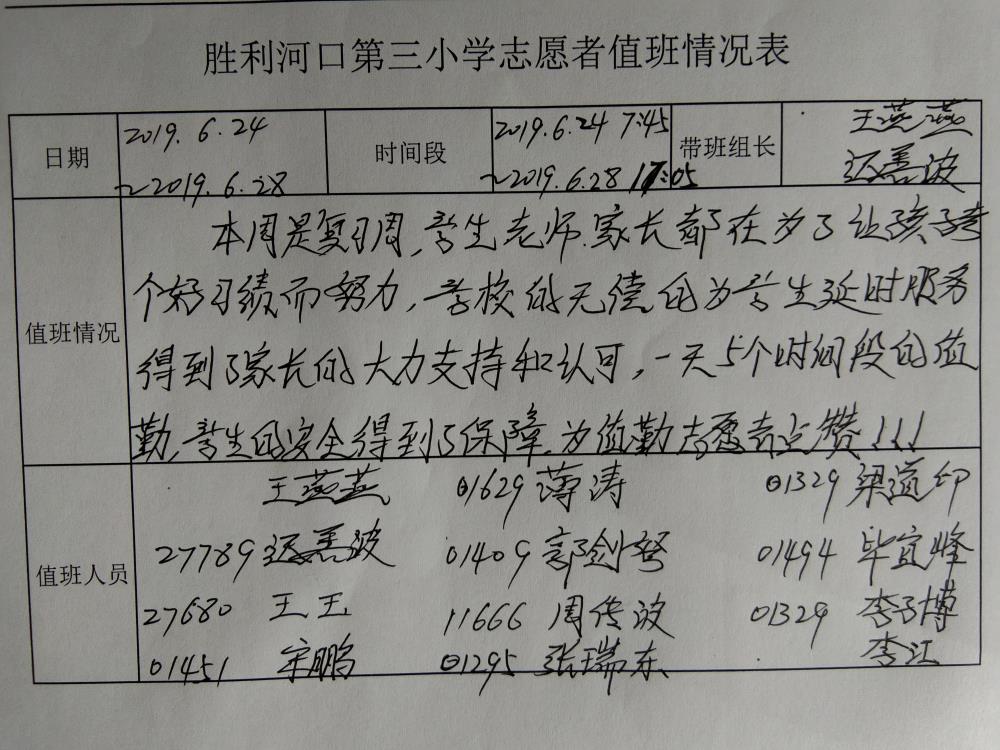 胜利河口第三小学志愿者值班情况表
日期 2019.6.24 ~2019.6.28 时间段 2019.6.24 7:45 ~2019.6.28 17:05 带班组长 王燕燕 迟善波
值班情况
本周是复习周,学生老师.家长都在为了让孩子考
个好习绩而努力,学校的无偿的为学生延时服务
得到了家长的大力支持和认可,一天5个时间段的值
勤,学生的安全得到了保障.为值勤志愿者点赞!!!
值班人员
王燕燕 01629 薄涛 01329 梁道印
27789 迟善波 01409 郭剑 01494 毕宜峰
27680 王王 11666 周传波 01329 李子博
01451 宋鹏 01295 张瑞东 李江